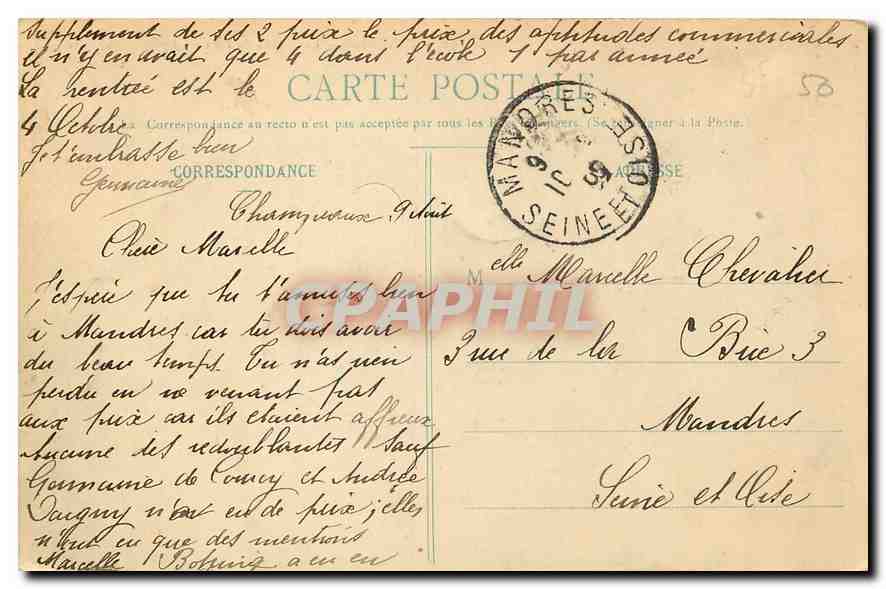 supplement de ses 2 prix le prix des aptitudes commerciales
il n'y en avait que 4 dans l'école 1 par année
La rentrée est le
4 Octobre
Je t'embrasse bien
Germaine
CARTE POSTALE
La Correspondance au recto n'est pas acceptée par tous les
(Se à la Poste.
50
CORRESPONDANCE
ADRESSE
MANDRES
SEINE ET OISE
9
10
Champ 9 Aout
Chère Marcelle
J'espère que tu t'amuses bien
à Mandres car tu dois avoir
du beau temps. Tu n'as rien
perdu en ne venant pas
aux prix car ils etaient affreux
Aucune des redoublantes sauf
Germaine de Courcy et Andrée
n'ont eu de prix; elles
n'ont eu que des mentions
Marcelle a eu en
CPAPHIL
Melle Marcelle Chevalier
3 rue de la Brie 3
Mandres
Seine et Oise